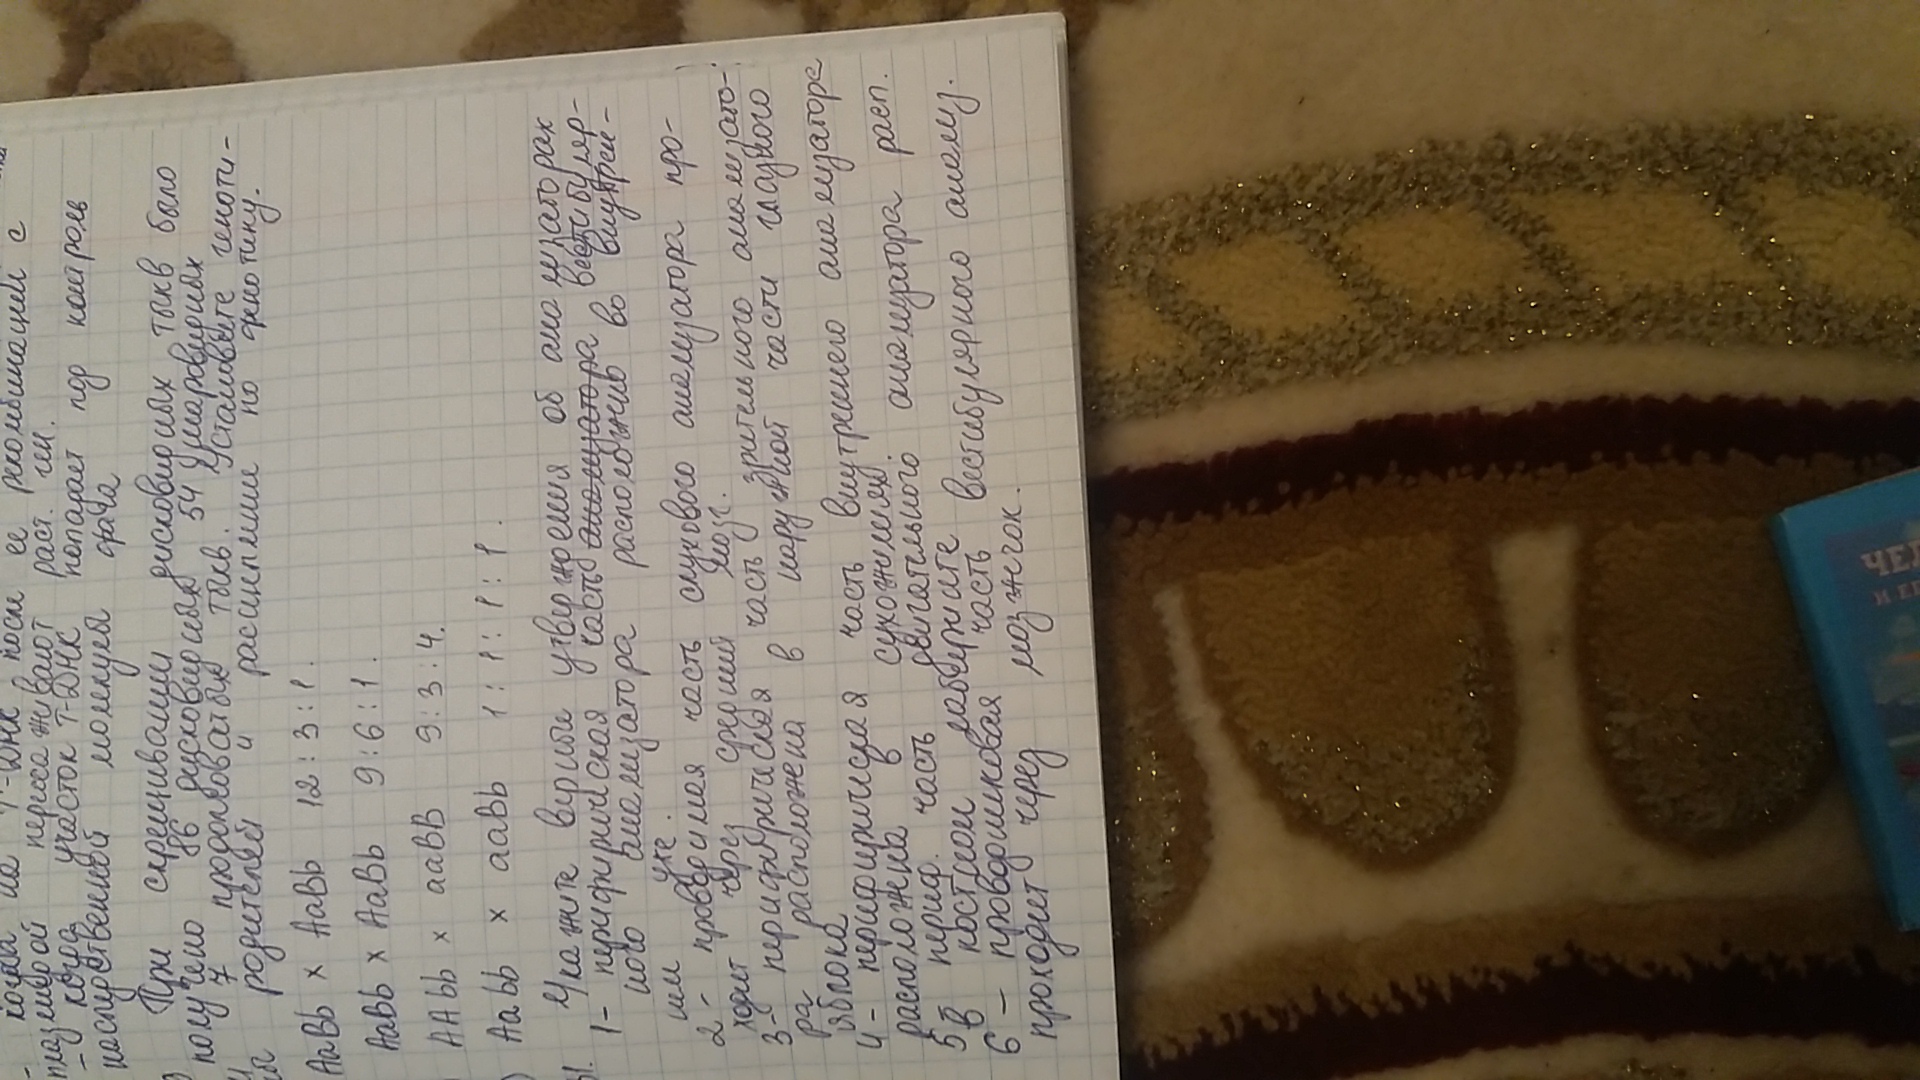 когда на Т-ДНК после ее рекомбинации с
плазмидой пересаживают раст. ген.
- когда участок Т-ДНК попадает под контроль
наследственной молекулы фага
При скрещивании дисковидных тыкв было
получено 86 дисковидных 54 шаровидных
и 7 продолговатых тыкв. Установите геноти-
родителей и расщепление по фенотипу.
AaBb x AaBb 12:3:1.
AaBb x AaBb 9:6:1.
AAbb x aaBB 9:3:4.
Aabb x aaBb 1:1:1:1.
Укажите верные утверждения об анализаторах
1- перифирическая часть вестибуляр-
ного анализатора расположив во внутрен-
нем ухе.
2- проводимая часть слухового анализатора про-
ходит через средний мозг.
3- перифирическая часть зрительного анализато-
ра расположена в наружной части глазного
яблока
4- перифирическая часть внутреннего анализатора
расположена в сухожилиях.
5 периф. часть двигательного анализатора расп.
в костном лабиринте
6- проводниковая часть вестибулярного анализ.
проходит через мозжечок.
ЧЕЛ
И ЕГ